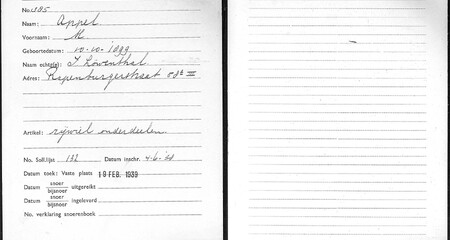 No. 105
Naam: Appel
Voornaam: M.
Geboortedatum: 10-10-1899
Naam echtg(e): J Löwenthal
Adres: Rapenburgerstraat 58 III
Artikel: rijwiel onderdeelen
No. Soll.lijst 132 Datum inschr. 4-6-'
Datum toek: Vaste plaats 19 FEB. 1939
Datum snoer
bijsnoer uitgereikt
Datum snoer
bijsnoer ingeleverd
No. verklaring snoerenboek